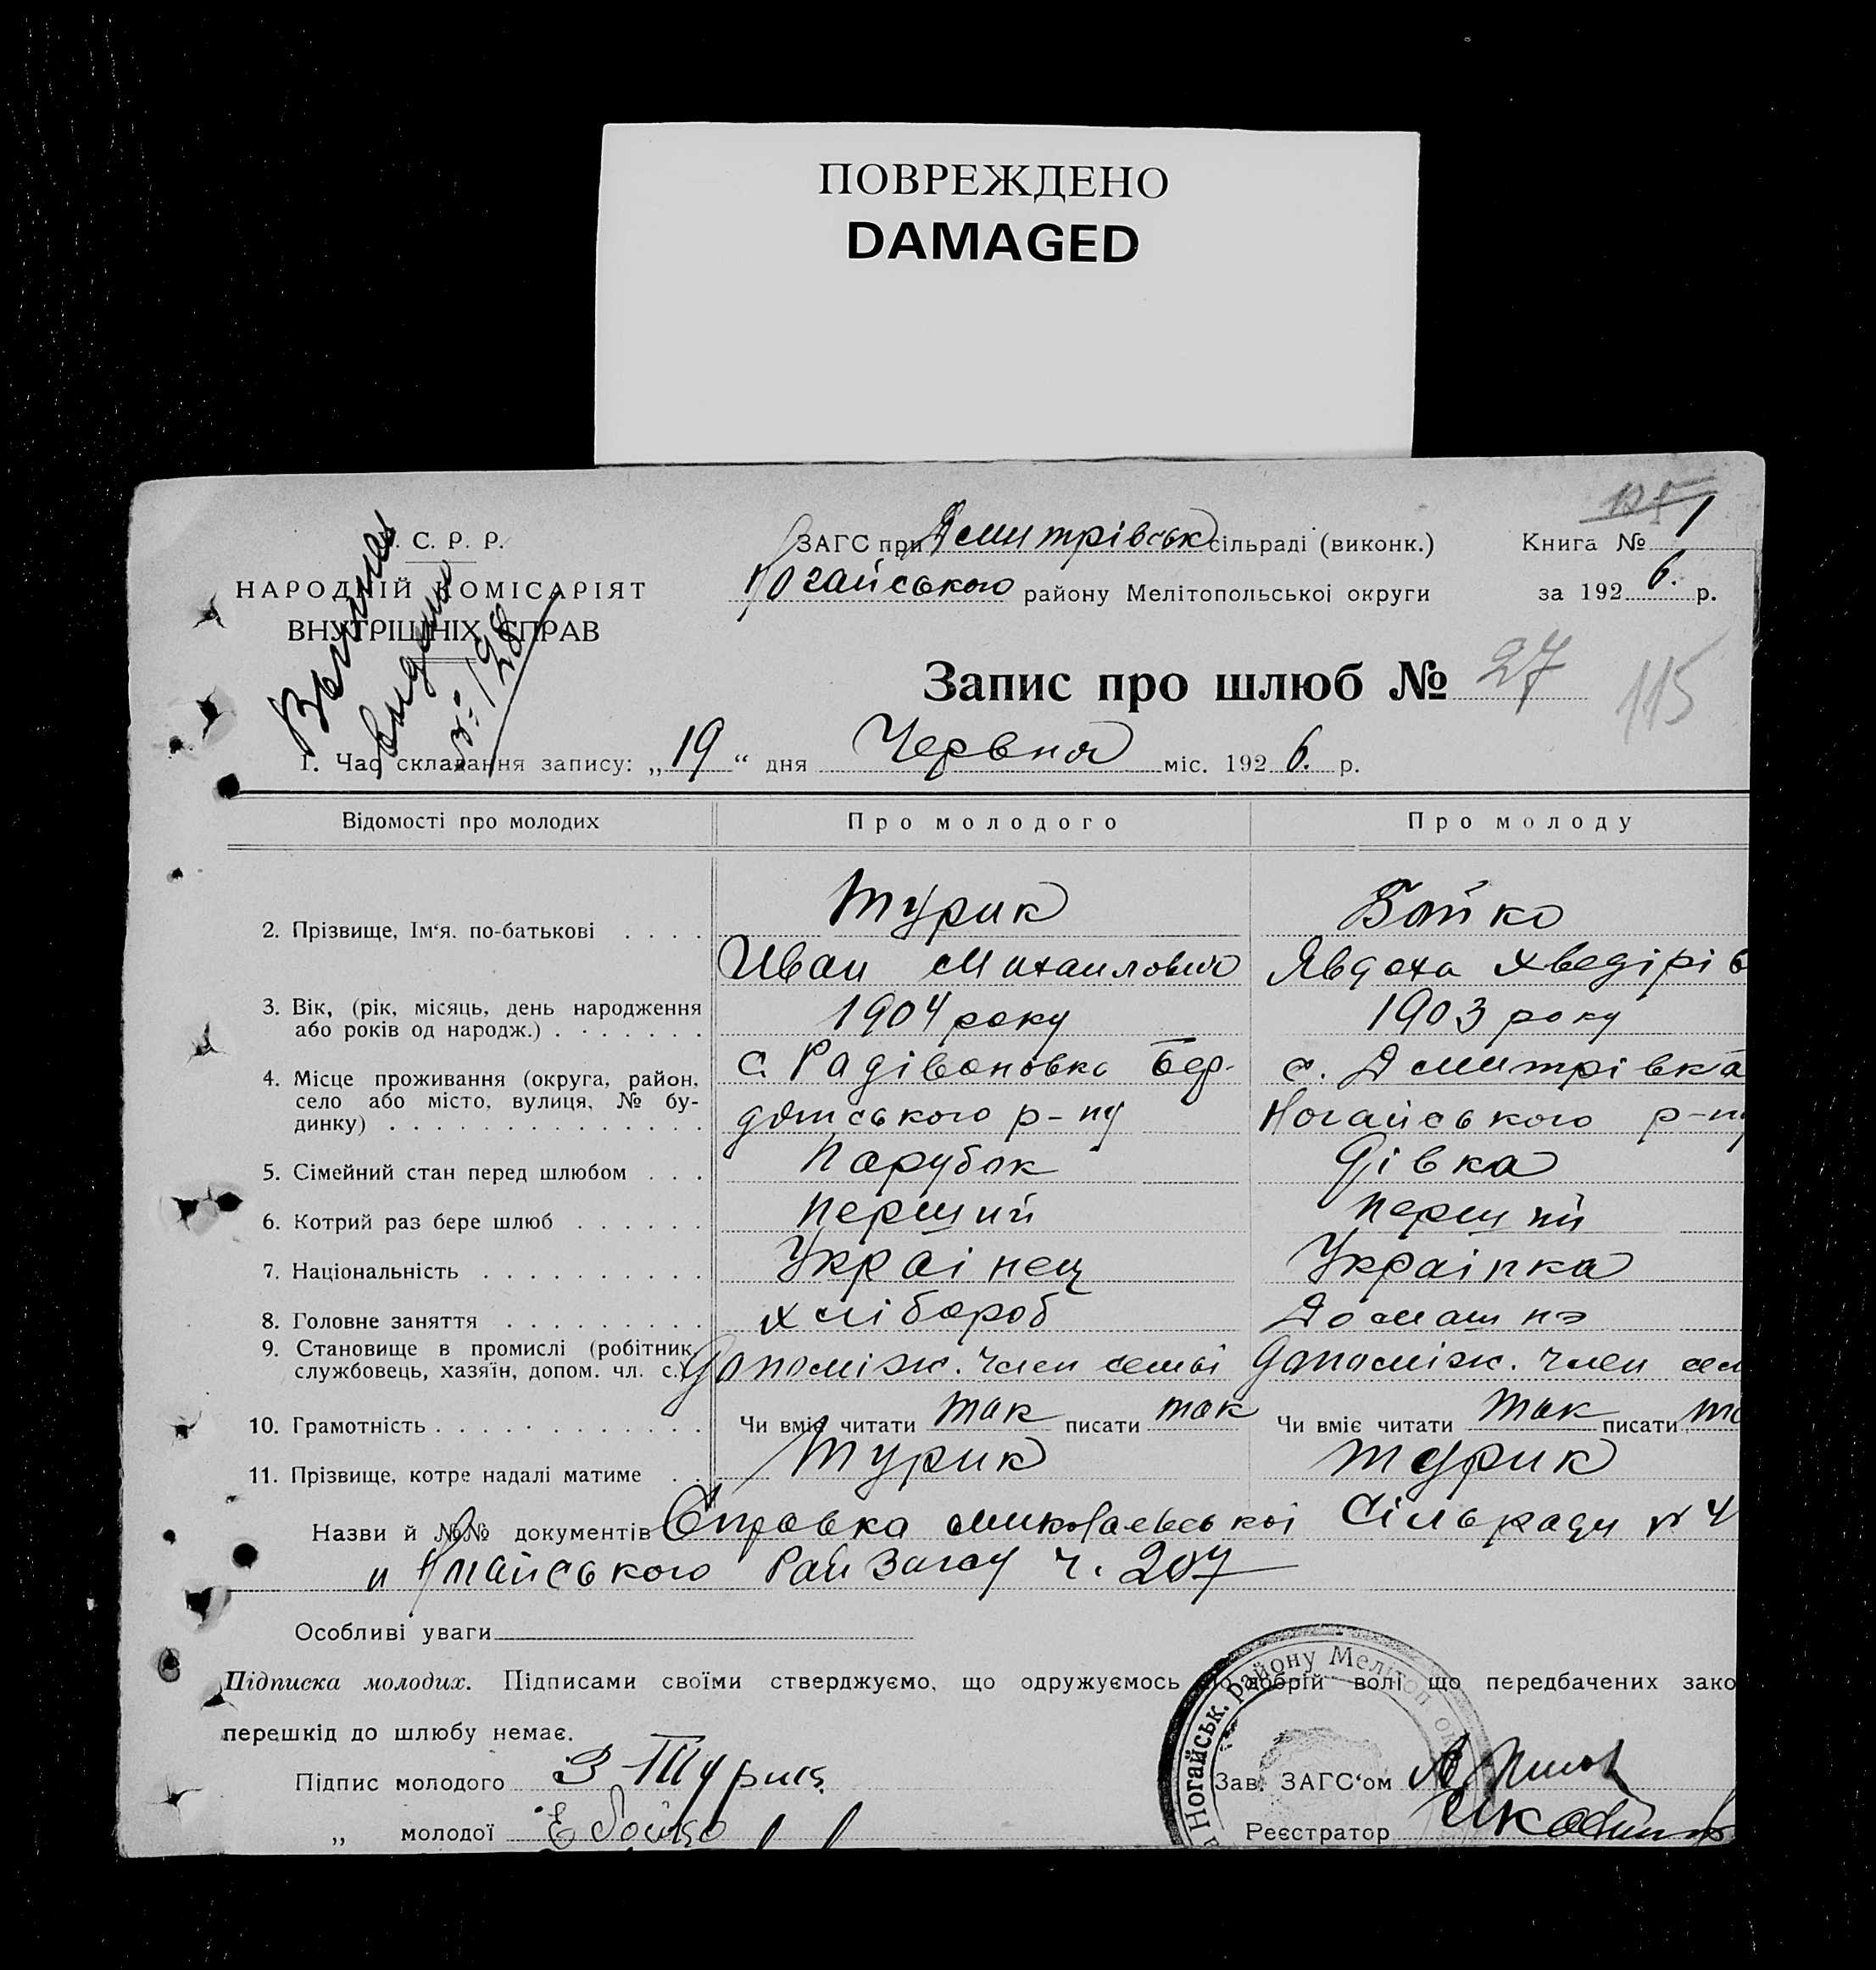 ПОВРЕЖДЕНО
DAMAGED
. С. Р. Р.
НАРОДНІЙ КОМІСАРІЯТ
ВНУТРІШНІХ СПРАВ
128
ЗАГС при Дмитрівськ сільраді (виконк.)
Ногайського району Мелітопольської округи
Книга № 1
за 1926. р.
Запис про шлюб № 27
115
1. Час складання запису: „19“ дня Червня міс. 1926. р.
Відомості про молодих Про молодого Про молоду
2. Прізвище, Ім‘я. по-батькові . . . . Турик Бойко
Иван Михаилович Явдоха Хведірів
3. Вік, (рік, місяць, день народження або років од народж.) . . . . . . . 1904 року 1903 року
4. Місце проживання (округа, район, село або місто, вулиця, № будинку) . . . . . . . . . . . . . . с. Радівоновка Бердянського р-ну с. Дмитрівка Ногайського р-ну
5. Сімейний стан перед шлюбом . . . Парубок Дівка
6. Котрий раз бере шлюб . . . . . . перший перший
7. Національність . . . . . . . . . . Украінец Украінка
8. Головне заняття . . . . . . . . . хлібороб Домашнэ
9. Становище в промислі (робітник, службовець, хазяїн, допом. чл. с.) допоміж. член семьі допоміж. член сем
10. Грамотність . . . . . . . . . . . . Чи вміє читати так писати так Чи вміє читати так писати та
11. Прізвище, котре надалі матиме . . Турик Турик
Назви й №№ документів Справка Миколаевськоі Сільради № 4
и Ногайського Райзагсу ч. 207
Особливі уваги
Підписка молодих. Підписами своїми стверджуємо, що одружуємось по добрій волі що передбачених зако
перешкід до шлюбу немає.
Ногайськ. району Меліто
Підпис молодого З Турик
Зав. ЗАГС‘ом
„ молодої Е Бойко
Реєстратор